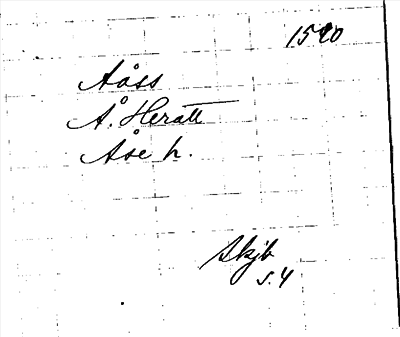 1520
Aåss
Å. Heratt
Åse h.
Skjb
s. 4